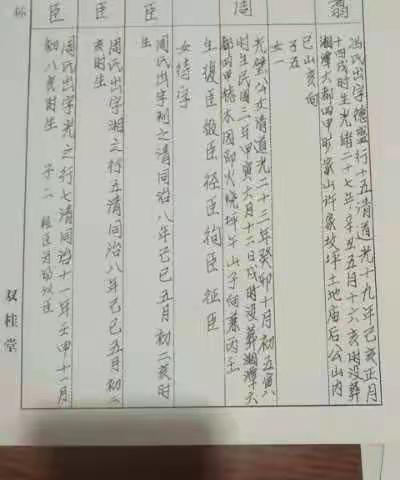 翦
冯氏出字德盛行十五清道光十九年己亥正月
十四戌时生光绪二十七年辛丑五月十六亥时没葬
湘潭大都四甲
山许家坟坪土地庙后公山内
巳山亥向
子五
女一
周
光璧公女清道光二十三年癸卯十月初五寅八
时生民国三年甲寅六月十二日戌时没葬湘潭大
都四甲樟木园即火烧坪午山子向墓丙
生
臣
臣
径臣
徇臣
征臣
女待字
臣
周氏出字列之清同治八年己巳五月初二亥时
生
臣
周氏出字湘之行五清同治八年己巳五月初二
亥时生
臣
周氏出字光之行七清同治十一年壬申十一月
初八亥时生
子二
双桂堂